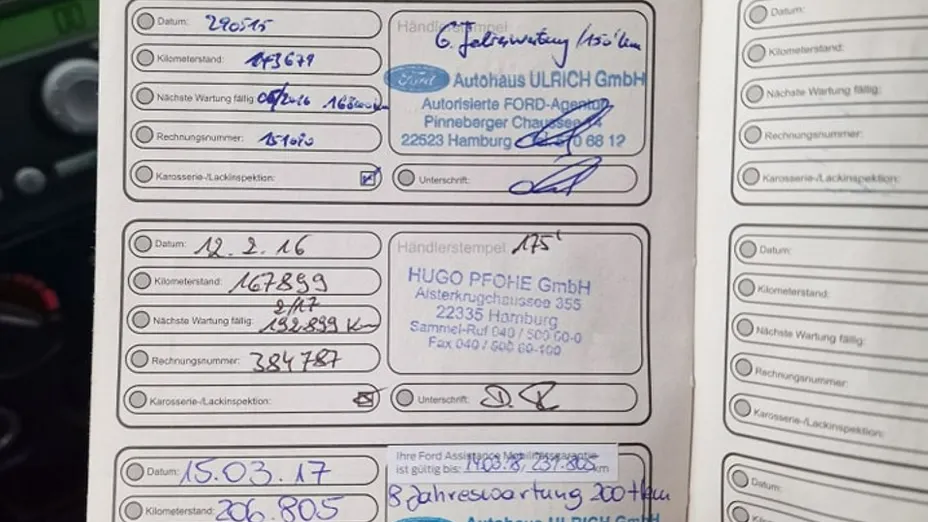 Datum: 290515
Händlerstempel
6. Jahreswartung / 150' km
Kilometerstand: 143671
Ford Autohaus ULRICH GmbH
Nächste Wartung fällig: 05/2016
Autorisierte FORD-Agentur
Pinneberger Chaussee
Rechnungsnummer: 151080
22523 Hamburg 0 68 12
Karosserie-/Lackinspektion:
Unterschrift:
Datum: 12. 2. 16
Händlerstempel 175'
Kilometerstand: 167899
HUGO PFOHE GmbH
Alsterkrugchaussee 355
22335 Hamburg
Sammel-Ruf 040 / 500 60-0
Fax 040 / 500 60-100
2/17
Nächste Wartung fällig: 192.899 Km
Rechnungsnummer: 384787
Karosserie-/Lackinspektion:
Unterschrift:
Datum: 15.03.17
Ihre Ford Assistance Mobilitätsgarantie
ist gültig bis: 14.03.18, 231.805 km
8 Jahreswartung 200 tkm
Kilometerstand: 206.805
Autohaus ULRICH GmbH
Datum:
Kilometerstand:
Nächste Wartung fällig:
Rechnungsnummer:
Karosserie-/Lackinspektion:
Datum:
Kilometerstand:
Nächste Wartung fällig:
Rechnungsnummer:
Karosserie-/Lackinspektion:
Datum:
Kilometerstand: